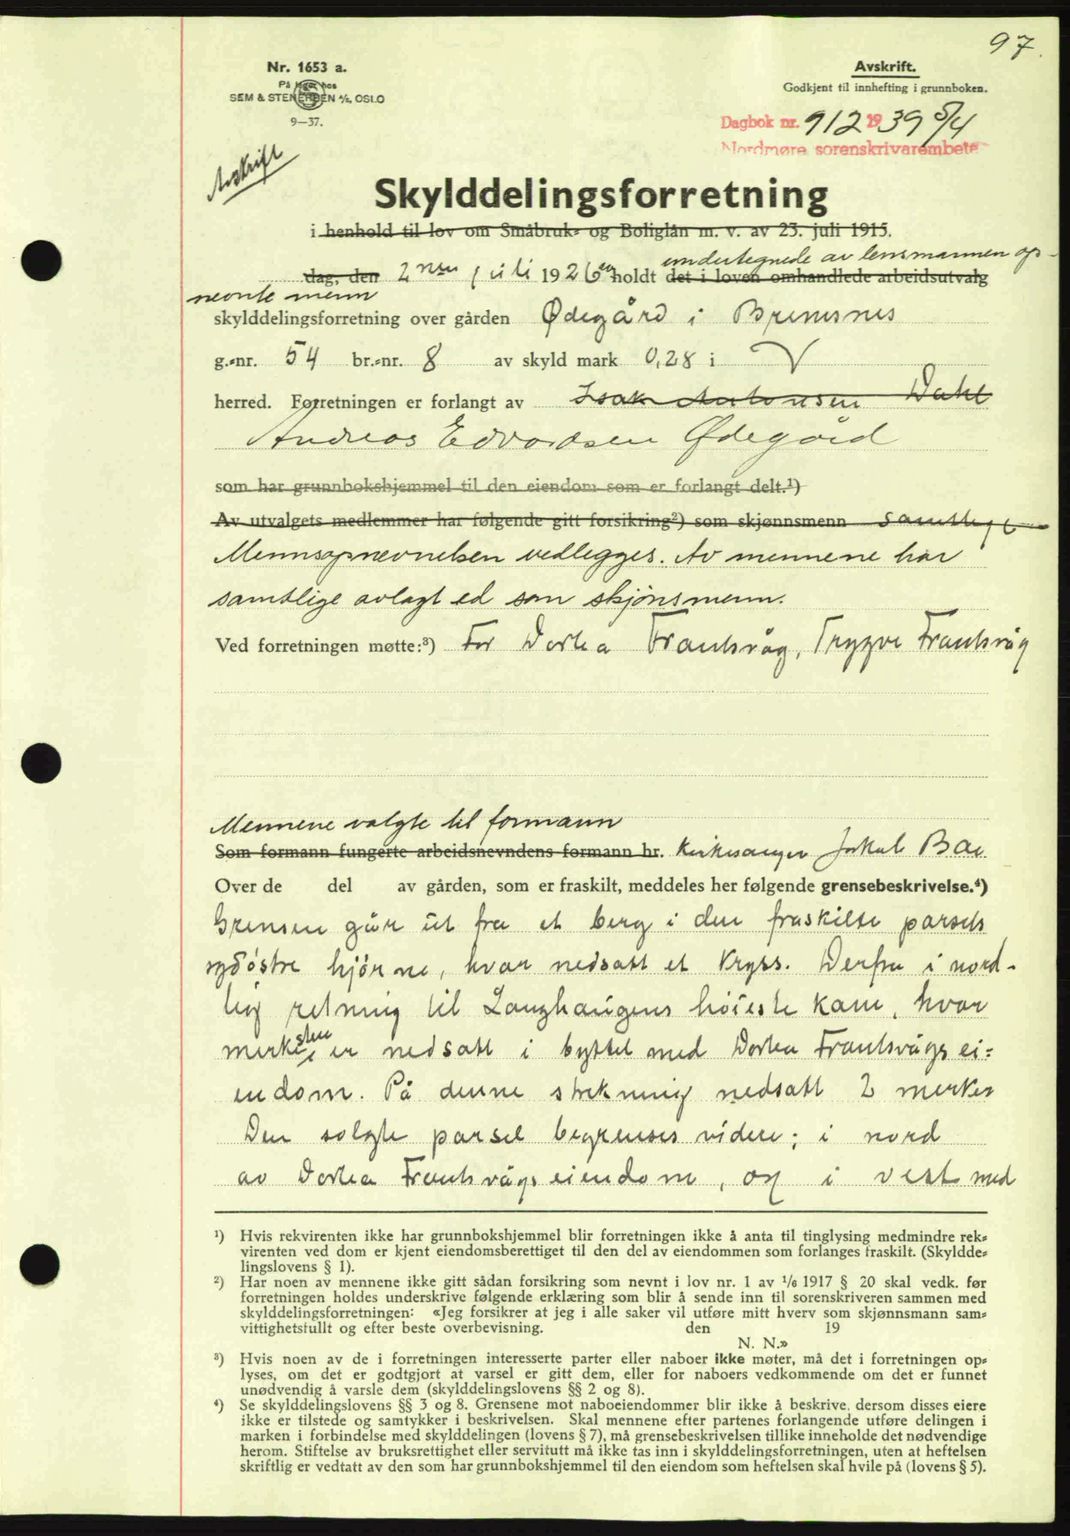 97.
Nr. 1653 a.
På lager hos
SEM & STENERSEN A/S, OSLO
9—37.
Avskrift.
Godkjent til innhefting i grunnboken.
Dagbok nr. 912 1939 5/4
Nordmøre sorenskriverembete
Avskrift
Skylddelingsforretning
i henhold til lov om Småbruk- og Boliglån m. v. av 23. juli 1915.
undertegnede av lensmannen op-
dag, den 2nen juli 1926 holdt det i loven omhandlede arbeidsutvalg
nevnte menn
skylddelingsforretning over gården Ødegård i Bremsnes
g.-nr. 54 br.-nr. 8 av skyld mark 0,28 i
herred. Forretningen er forlangt av Isak Antonsen Dahl
Andreas Edvardsen Ødegård
som har grunnbokshjemmel til den eiendom som er forlangt delt.¹)
Av utvalgets medlemmer har følgende gitt forsikring²) som skjønnsmenn samtlige
Mennsopnevnelsen vedlegges. Av mennene har
samtlige avlagt ed som skjønsmenn.
Ved forretningen møtte:³) For Dortea Frantsvåg, Trygve Frantsvåg
Mennene valgte til formann
Som formann fungerte arbeidsnevndens formann hr. Kirkesanger Jakob Bae
Over de del av gården, som er fraskilt, meddeles her følgende grensebeskrivelse.⁴)
Grensen går ut fra et berg i den fraskilte parsels
sydøstre hjørne, hvor nedsatt et kryss. Derfra i nord-
lig retning til Langhaugens høieste kam, hvor
merkesten er nedsatt i byttet med Dortea Frantsvågs ei-
endom. På denne strekning nedsatt 2 merker
Den solgte parsel begrenses videre; i nord
av Dortea Frantsvågs eiendom, og i vest med
¹) Hvis rekvirenten ikke har grunnbokshjemmel blir forretningen ikke å anta til tinglysing medmindre rek-
virenten ved dom er kjent eiendomsberettiget til den del av eiendommen som forlanges fraskilt. (Skyldde-
lingslovens § 1).
²) Har noen av mennene ikke gitt sådan forsikring som nevnt i lov nr. 1 av 1/6 1917 § 20 skal vedk. før
forretningen holdes underskrive følgende erklæring som blir å sende inn til sorenskriveren sammen med
skylddelingsforretningen: «Jeg forsikrer at jeg i alle saker vil utføre mitt hverv som skjønnsmann sam-
vittighetsfullt og efter beste overbevisning. den 19
N. N.»
³) Hvis noen av de i forretningen interesserte parter eller naboer ikke møter, må det i forretningen op-
lyses, om det er godtgjort at varsel er gitt dem, eller for naboers vedkommende om det er funnet
unødvendig å varsle dem (skylddelingslovens §§ 2 og 8).
⁴) Se skylddelingslovens §§ 3 og 8. Grensene mot naboeiendommer blir ikke å beskrive, dersom disses eiere
ikke er tilstede og samtykker i beskrivelsen. Skal mennene efter partenes forlangende utføre delingen i
marken i forbindelse med skylddelingen (lovens § 7), må grensebeskrivelsen tillike inneholde det nødvendige
herom. Stiftelse av bruksrettighet eller servitutt må ikke tas inn i skylddelingsforretningen, uten at heftelsen
skriftlig er vedtatt av den som har grunnbokshjemmel til den eiendom som heftelsen skal hvile på (lovens § 5).